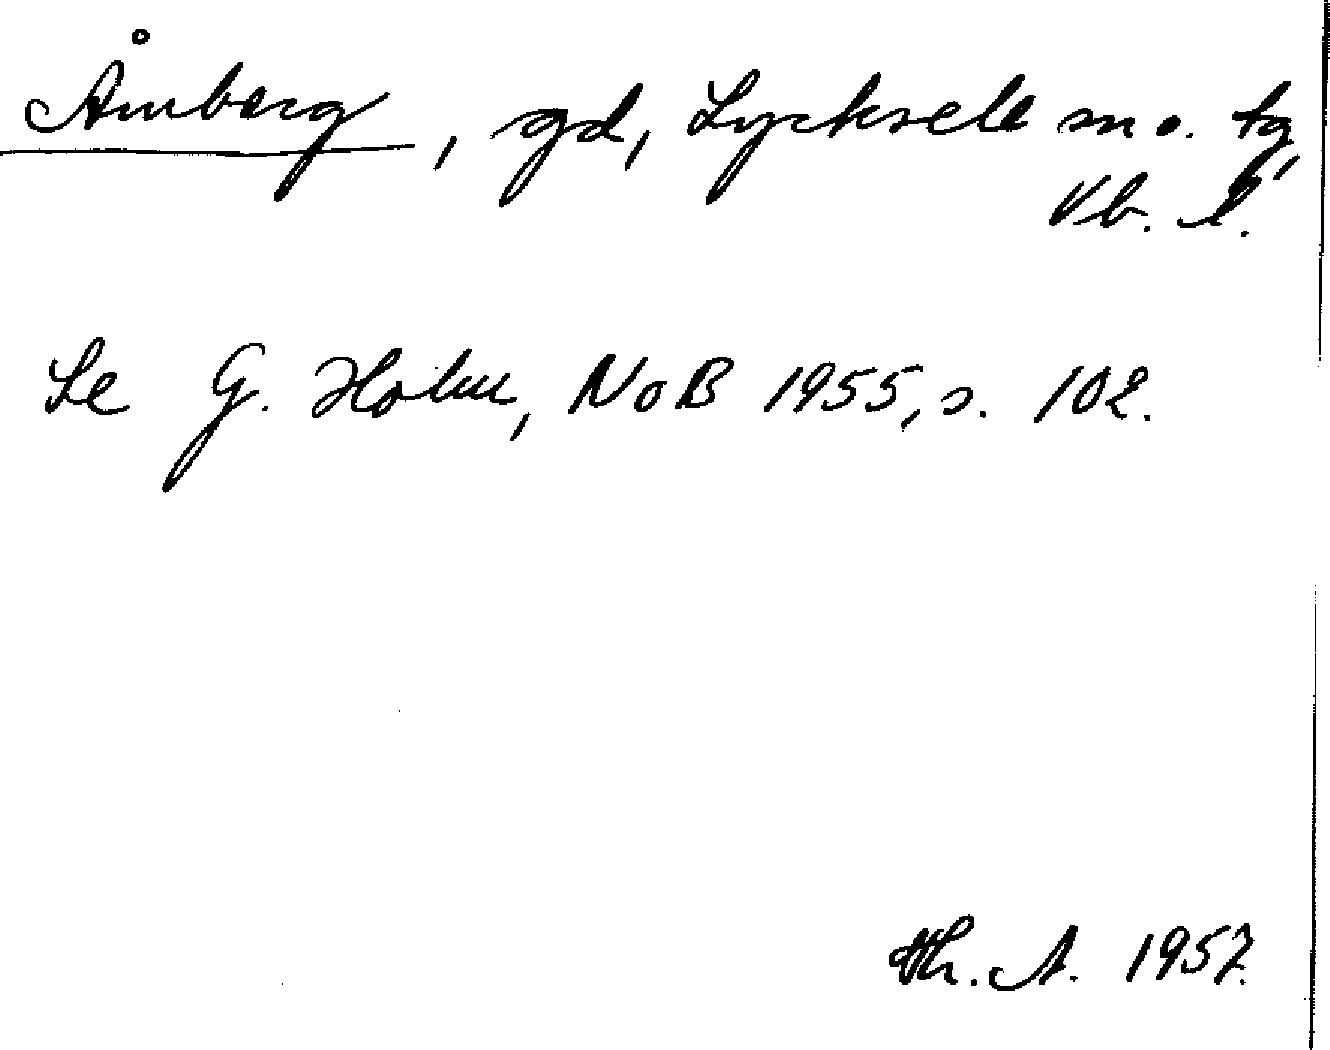 Åmberg, gd, Lycksele sn o. tg,
Vb. l.
Se G. Holm, NoB 1955, s. 102.
Th. A. 1957.